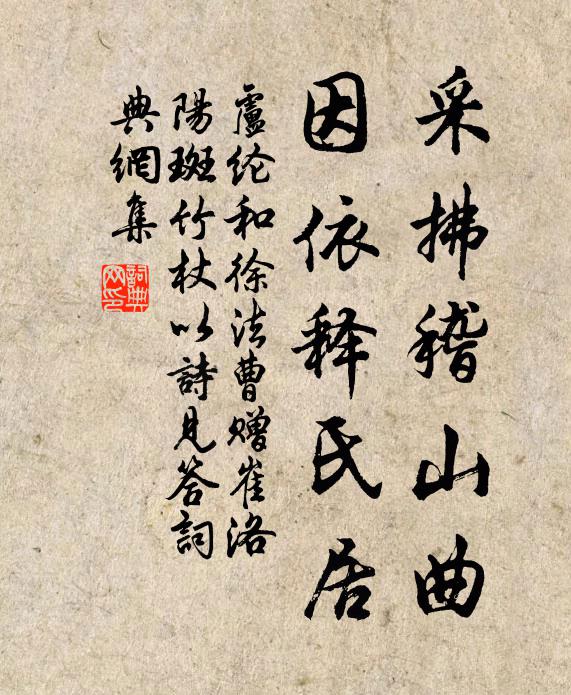 采拂稽山曲
因依释氏居
盧纶和徐法曹赠崔洛
陽斑竹杖以詩見答詞
典網集
詞典
网印